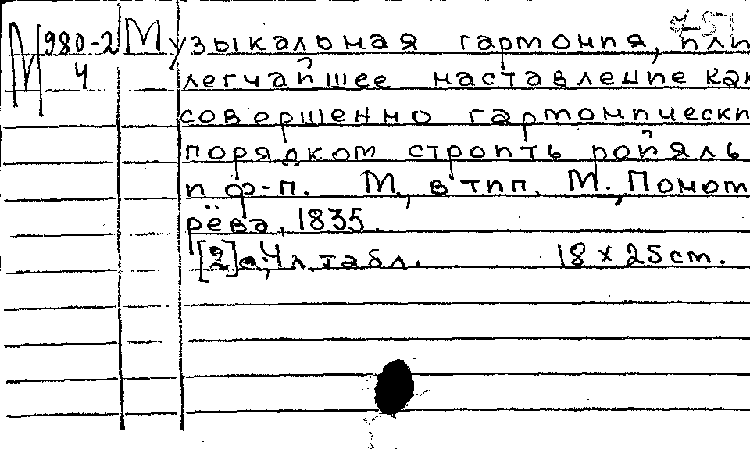 М 980-2 Музыкальная гармония, или
4 легчайшее наставление как
совершенно гармонически
порядком строить ройяль
и ф-п. М., в тип. М. Помот
рёва, 1835.
[2]с, 4 л. табл. 18 × 25 cm.